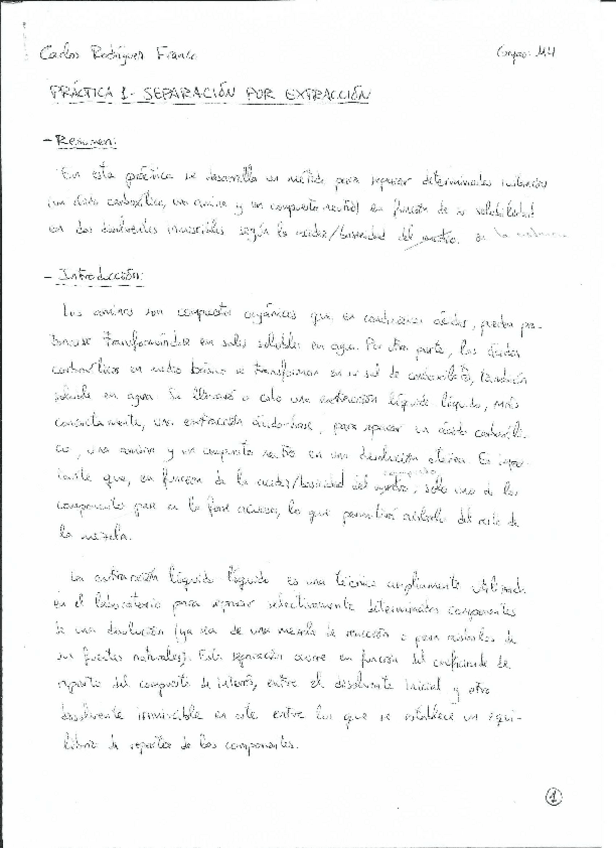 Carlos Rodríguez Franco Grupo: M4
PRÁCTICA 1.- SEPARACIÓN POR EXTRACCIÓN
- Resumen:
En esta práctica se desarrolla un método para separar determinadas sustancias
(un ácido carboxílico, una amina y un compuesto neutro) en función de su solubilidad
en dos disolventes inmiscibles según la acidez/basicidad del medio.
- Introducción:
Las aminas son compuestos orgánicos que, en condiciones ácidas, pueden pro-
tonarse transformándose en sales solubles en agua. Por otra parte, los ácidos
carboxílicos en medio básico se transforman en su sal de carboxilato, también
soluble en agua. Se llevará a cabo una extracción líquido líquido, más
concretamente, una extracción ácido-base, para separar un ácido carboxíli-
co, una amina y un compuesto neutro en una disolución etérea. Es impor-
tante que, en función de la acidez/basicidad del compuesto, sólo uno de los
componentes pase a la fase acuosa, lo que permitirá aislarlo del resto de
la mezcla.
La extracción líquido líquido es una técnica ampliamente utilizada
en el laboratorio para separar selectivamente determinados componentes
de una disolución (ya sea de una mezcla de reacción o para aislarlos de
sus fuentes naturales). Esta separación ocurre en función del coeficiente de
reparto del compuesto de interés, entre el disolvente inicial y otro
disolvente inmiscible en este, entre los que se establece un equi-
librio de reparto de los componentes.
1